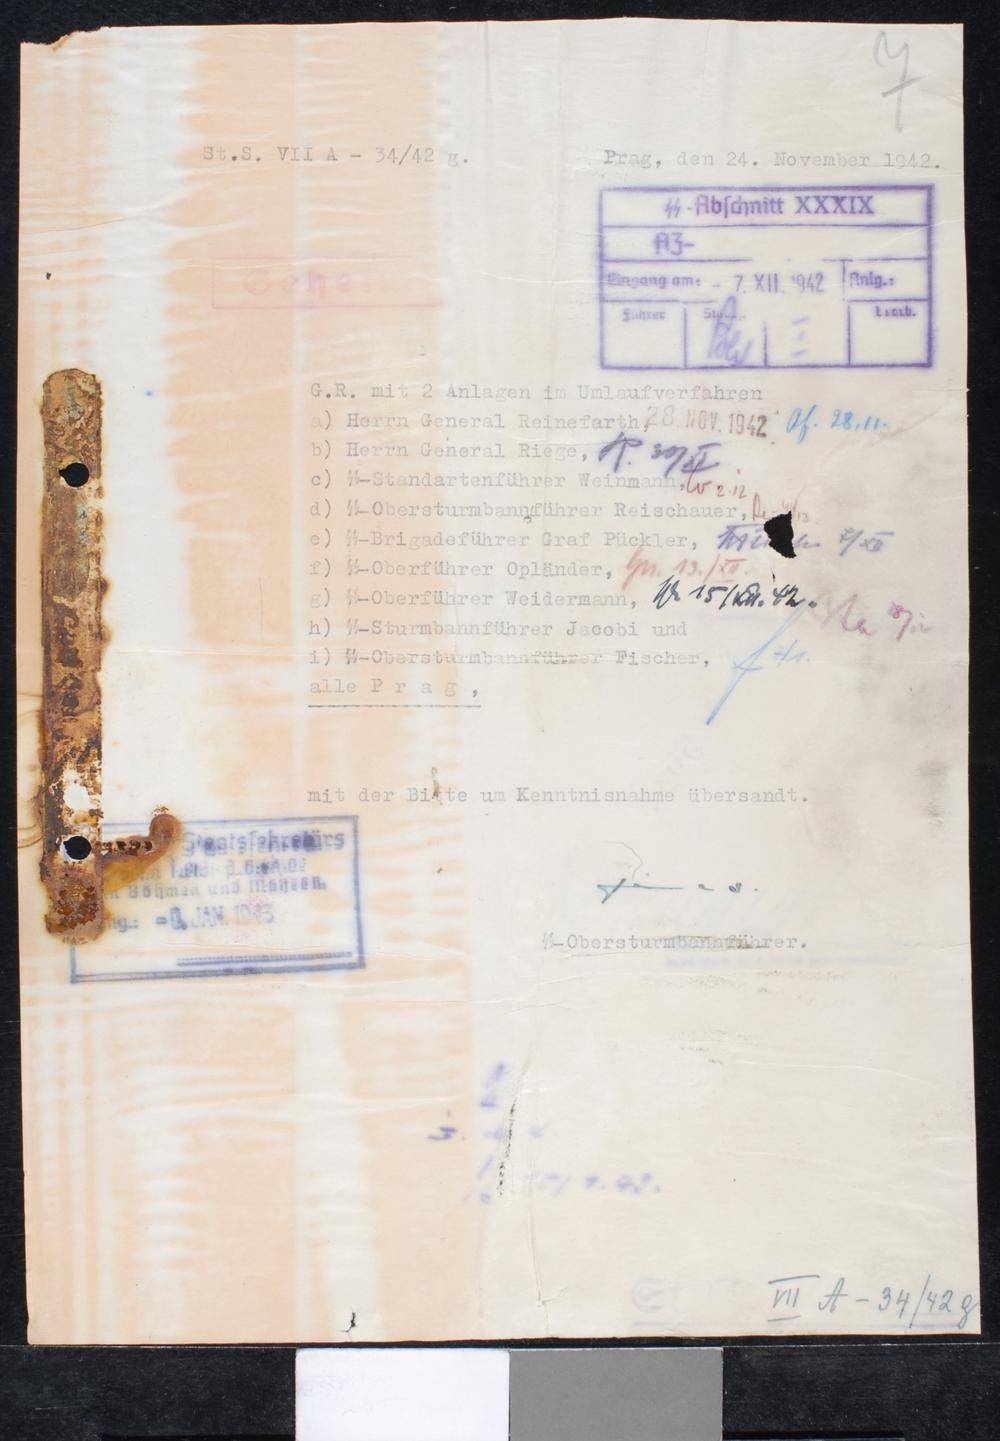 7
St.S. VII A - 34/42 g.
Prag, den 24. November 1942.
ᛋᛋ-Abschnitt XXXIX
AZ-
Eingang am: - 7. XII. 1942 Anlg.:
Führer
I
Gehe
G.R. mit 2 Anlagen im Umlaufverfahren
a) Herrn General Reinefarth, 28. NOV. 1942. 28.11.
b) Herrn General Riege, R. 30/XI
c) ᛋᛋ-Standartenführer Weinmann, W 2.12
d) ᛋᛋ-Obersturmbannführer Reischauer,
e) ᛋᛋ-Brigadeführer Graf Pückler, 7/XII
f) ᛋᛋ-Oberführer Opländer, 13./XII.
g) ᛋᛋ-Oberführer Weidermann, 15/XII. 42.
h) ᛋᛋ-Sturmbannführer Jacobi und
i) ᛋᛋ-Obersturmbannführer Fischer,
alle P r a g ,
mit der Bitte um Kenntnisnahme übersandt.
Staatssekretärs
Böhmen und Mähren.
JAN. 1943
ᛋᛋ-Obersturmbannführer.
VII A - 34/42 g